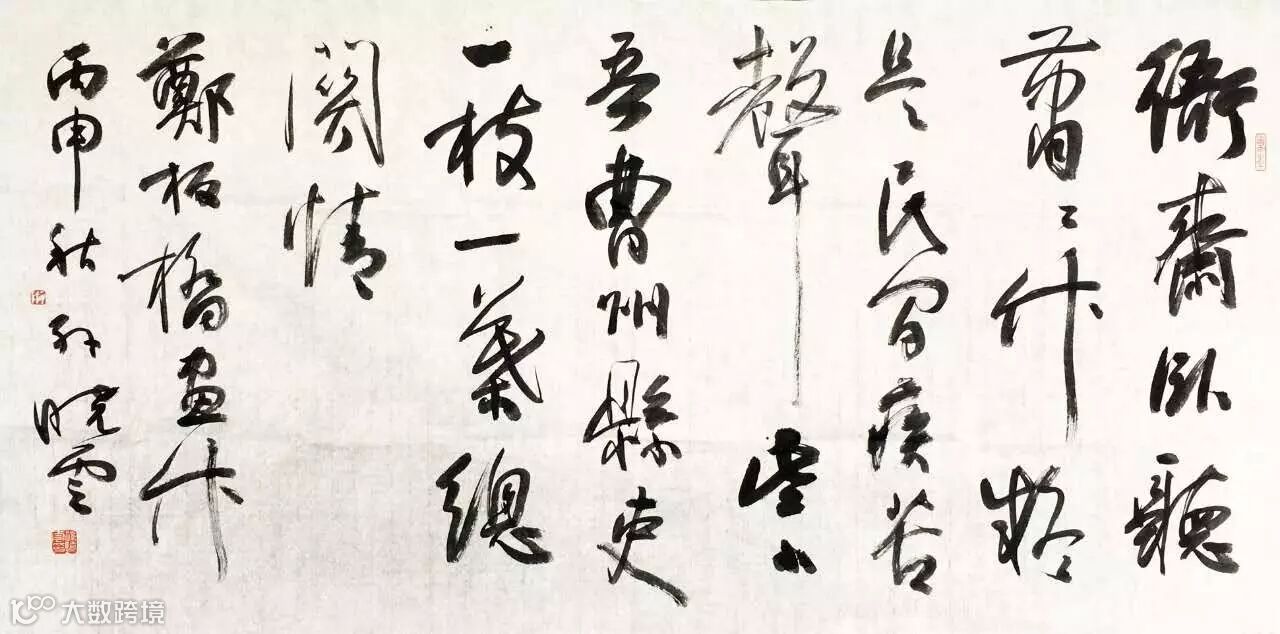 衙齋臥聽
蕭〻竹疑
是民間疾苦
聲些小
吾曹州縣吏
一枝一葉總
關情
鄭板橋畫竹
丙申秋孫曉雲
大数跨境